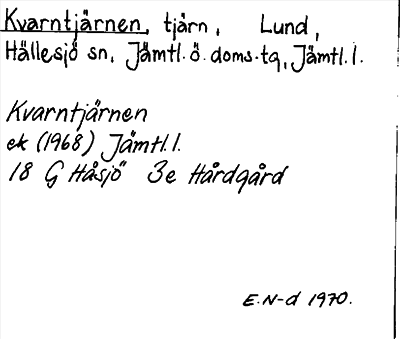 Kvarntjärnen, tjärn, Lund,
Hällesjö sn, Jämtl. ö. doms. tg, Jämtl. l.
Kvarntjärnen
ek (1968) Jämtl. l.
18 G Håsjö 3e Hårdgård
E. N-d 1970.